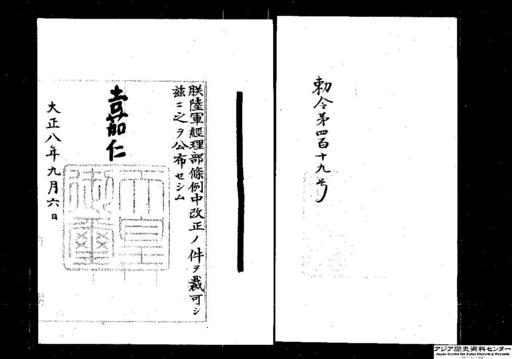 勅令第四百十九号
朕陸軍經理部條例中改正ノ件ヲ裁可シ
茲ニ之ヲ公布セシム
嘉仁
大正八年九月六日
天皇
御璽
アジア歴史資料センター
Japan Center for Asian Historical Records